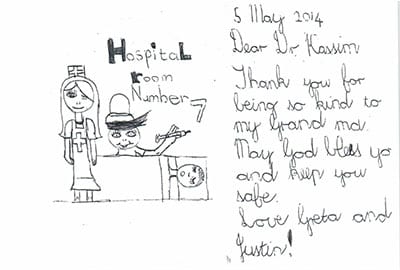 Hospital
room
Number
7
5 May 2014
Dear Dr Kassim
Thank you for
being so kind to
my Grand ma.
May God bless yo
and keep you
safe.
Love Geta and
Justin!